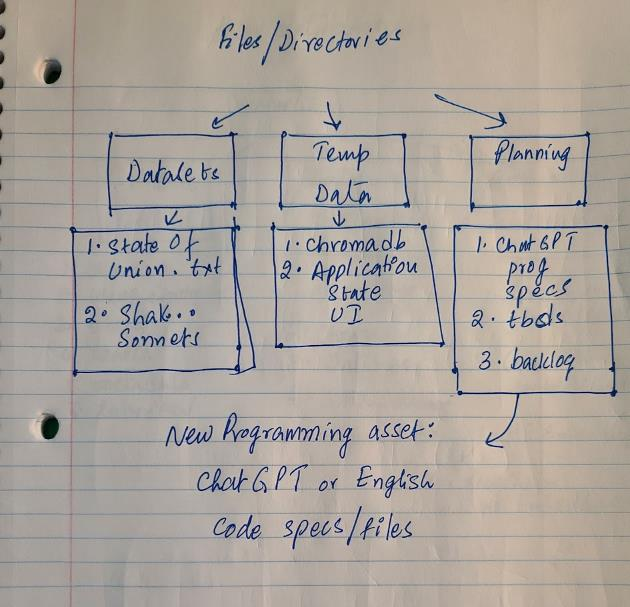 Files/Directories
Datasets
Temp
Data
Planning
1. State Of
Union. txt
2. Shak...
Sonnets
1. Chromadb
2. Application
State
UI
1. Chat GPT
prog
specs
2. tbds
3. backlog
New Programming asset:
Chat GPT or English
Code specs/files